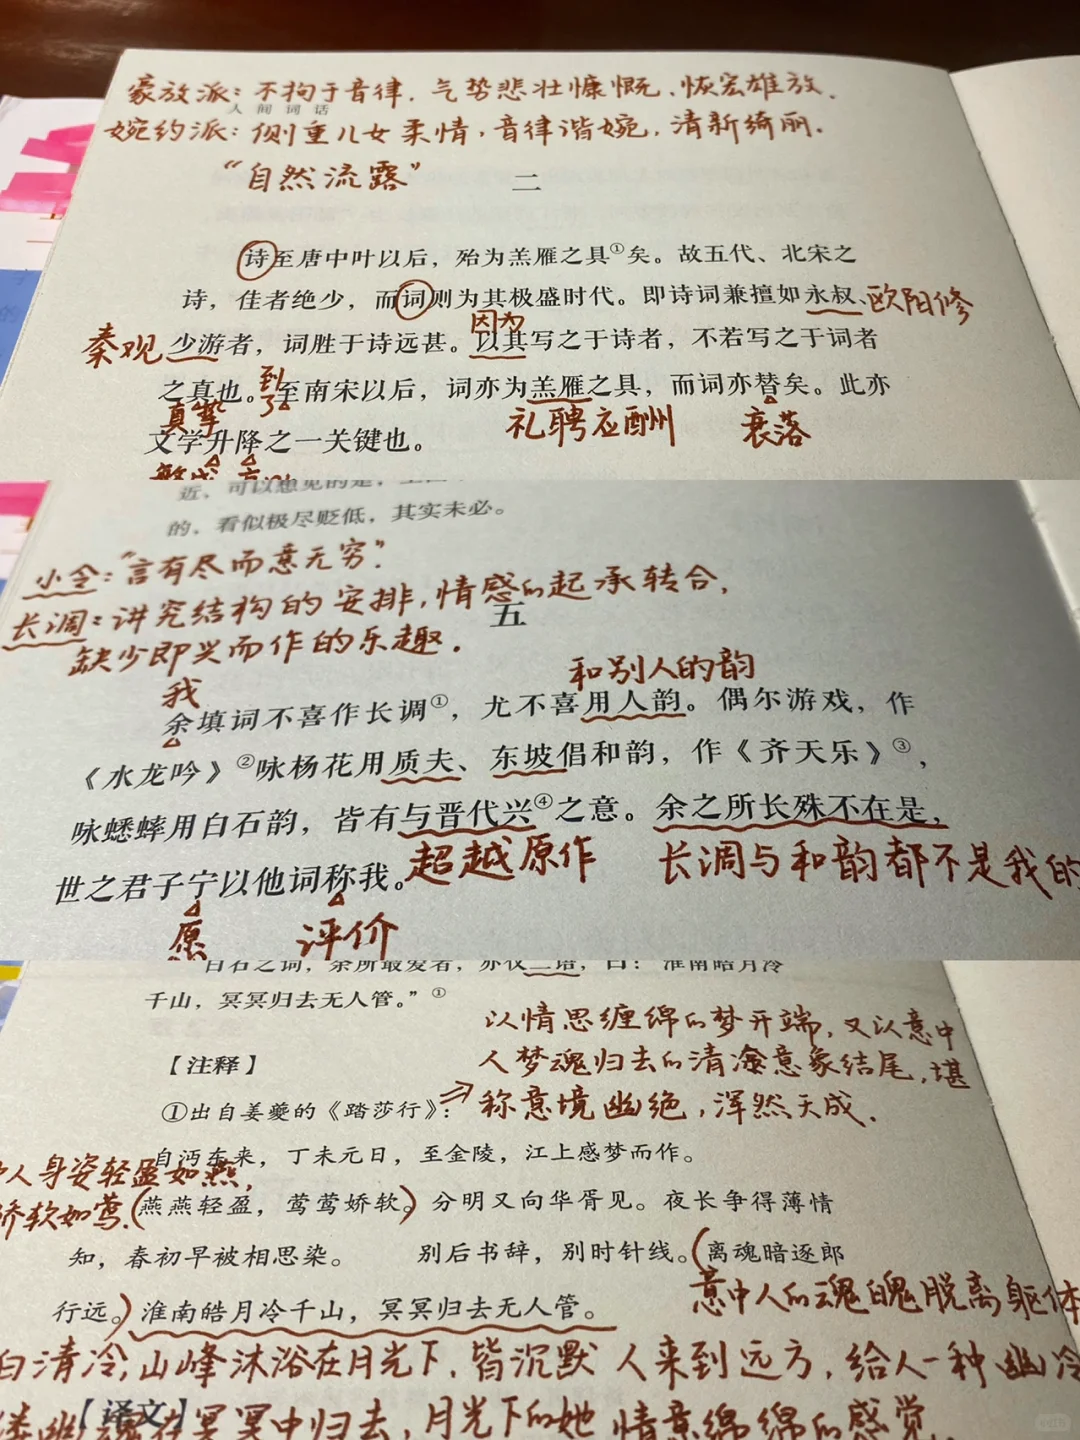 豪放派：不拘于音律，气势悲壮慷慨、恢宏雄放。
人间词话
婉约派：侧重儿女柔情，音律谐婉，清新绮丽。
“自然流露”
二
诗至唐中叶以后，殆为羔雁之具①矣。故五代、北宋之
诗，佳者绝少，而词则为其极盛时代。即诗词兼擅如永叔、欧阳修
因为
秦观 少游者，词胜于诗远甚。以其写之于诗者，不若写之于词者
到了
之真也。至南宋以后，词亦为羔雁之具，而词亦替矣。此亦
真挚 礼聘应酬 衰落
文学升降之一关键也。
近，可以想见的是，
的，看似极尽贬低，其实未必。
小令：“言有尽而意无穷”。
长调：讲究结构的安排，情感的起承转合，
五
缺少即兴而作的乐趣。
我 和别人的韵
余填词不喜作长调①，尤不喜用人韵。偶尔游戏，作
《水龙吟》②咏杨花用质夫、东坡倡和韵，作《齐天乐》③，
咏蟋蟀用白石韵，皆有与晋代兴④之意。余之所长殊不在是，
世之君子宁以他词称我。超越原作 长调与和韵都不是我的
愿 评价
白石之词，余所最爱者，亦仅二语，曰：“淮南皓月冷
千山，冥冥归去无人管。”①
以情思缠绵的梦开端，又以意中
【注释】 人梦魂归去的清淹意象结尾，堪
①出自姜夔的《踏莎行》： 称意境幽绝，浑然天成。
自沔东来，丁未元日，至金陵，江上感梦而作。
人身姿轻盈如燕，
娇软如莺。（燕燕轻盈，莺莺娇软。）分明又向华胥见。夜长争得薄情
知，春初早被相思染。 别后书辞，别时针线。（离魂暗逐郎
行远。）淮南皓月冷千山，冥冥归去无人管。 意中人的魂魄脱离躯体
白清冷，山峰沐浴在月光下，皆沉默 人来到远方，给人一种幽冷
【译文】
在冥冥中归去，月光下的她 情意绵绵的感觉。